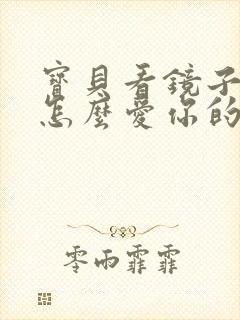 寶貝看鏡子
怎麼愛你的
零雨霏霏